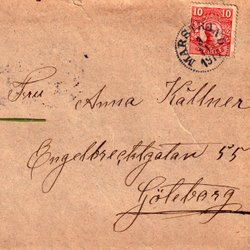 10
MARSTRAND
Fru Anna Kållner
Engelbrechtgatan 55
Göteborg